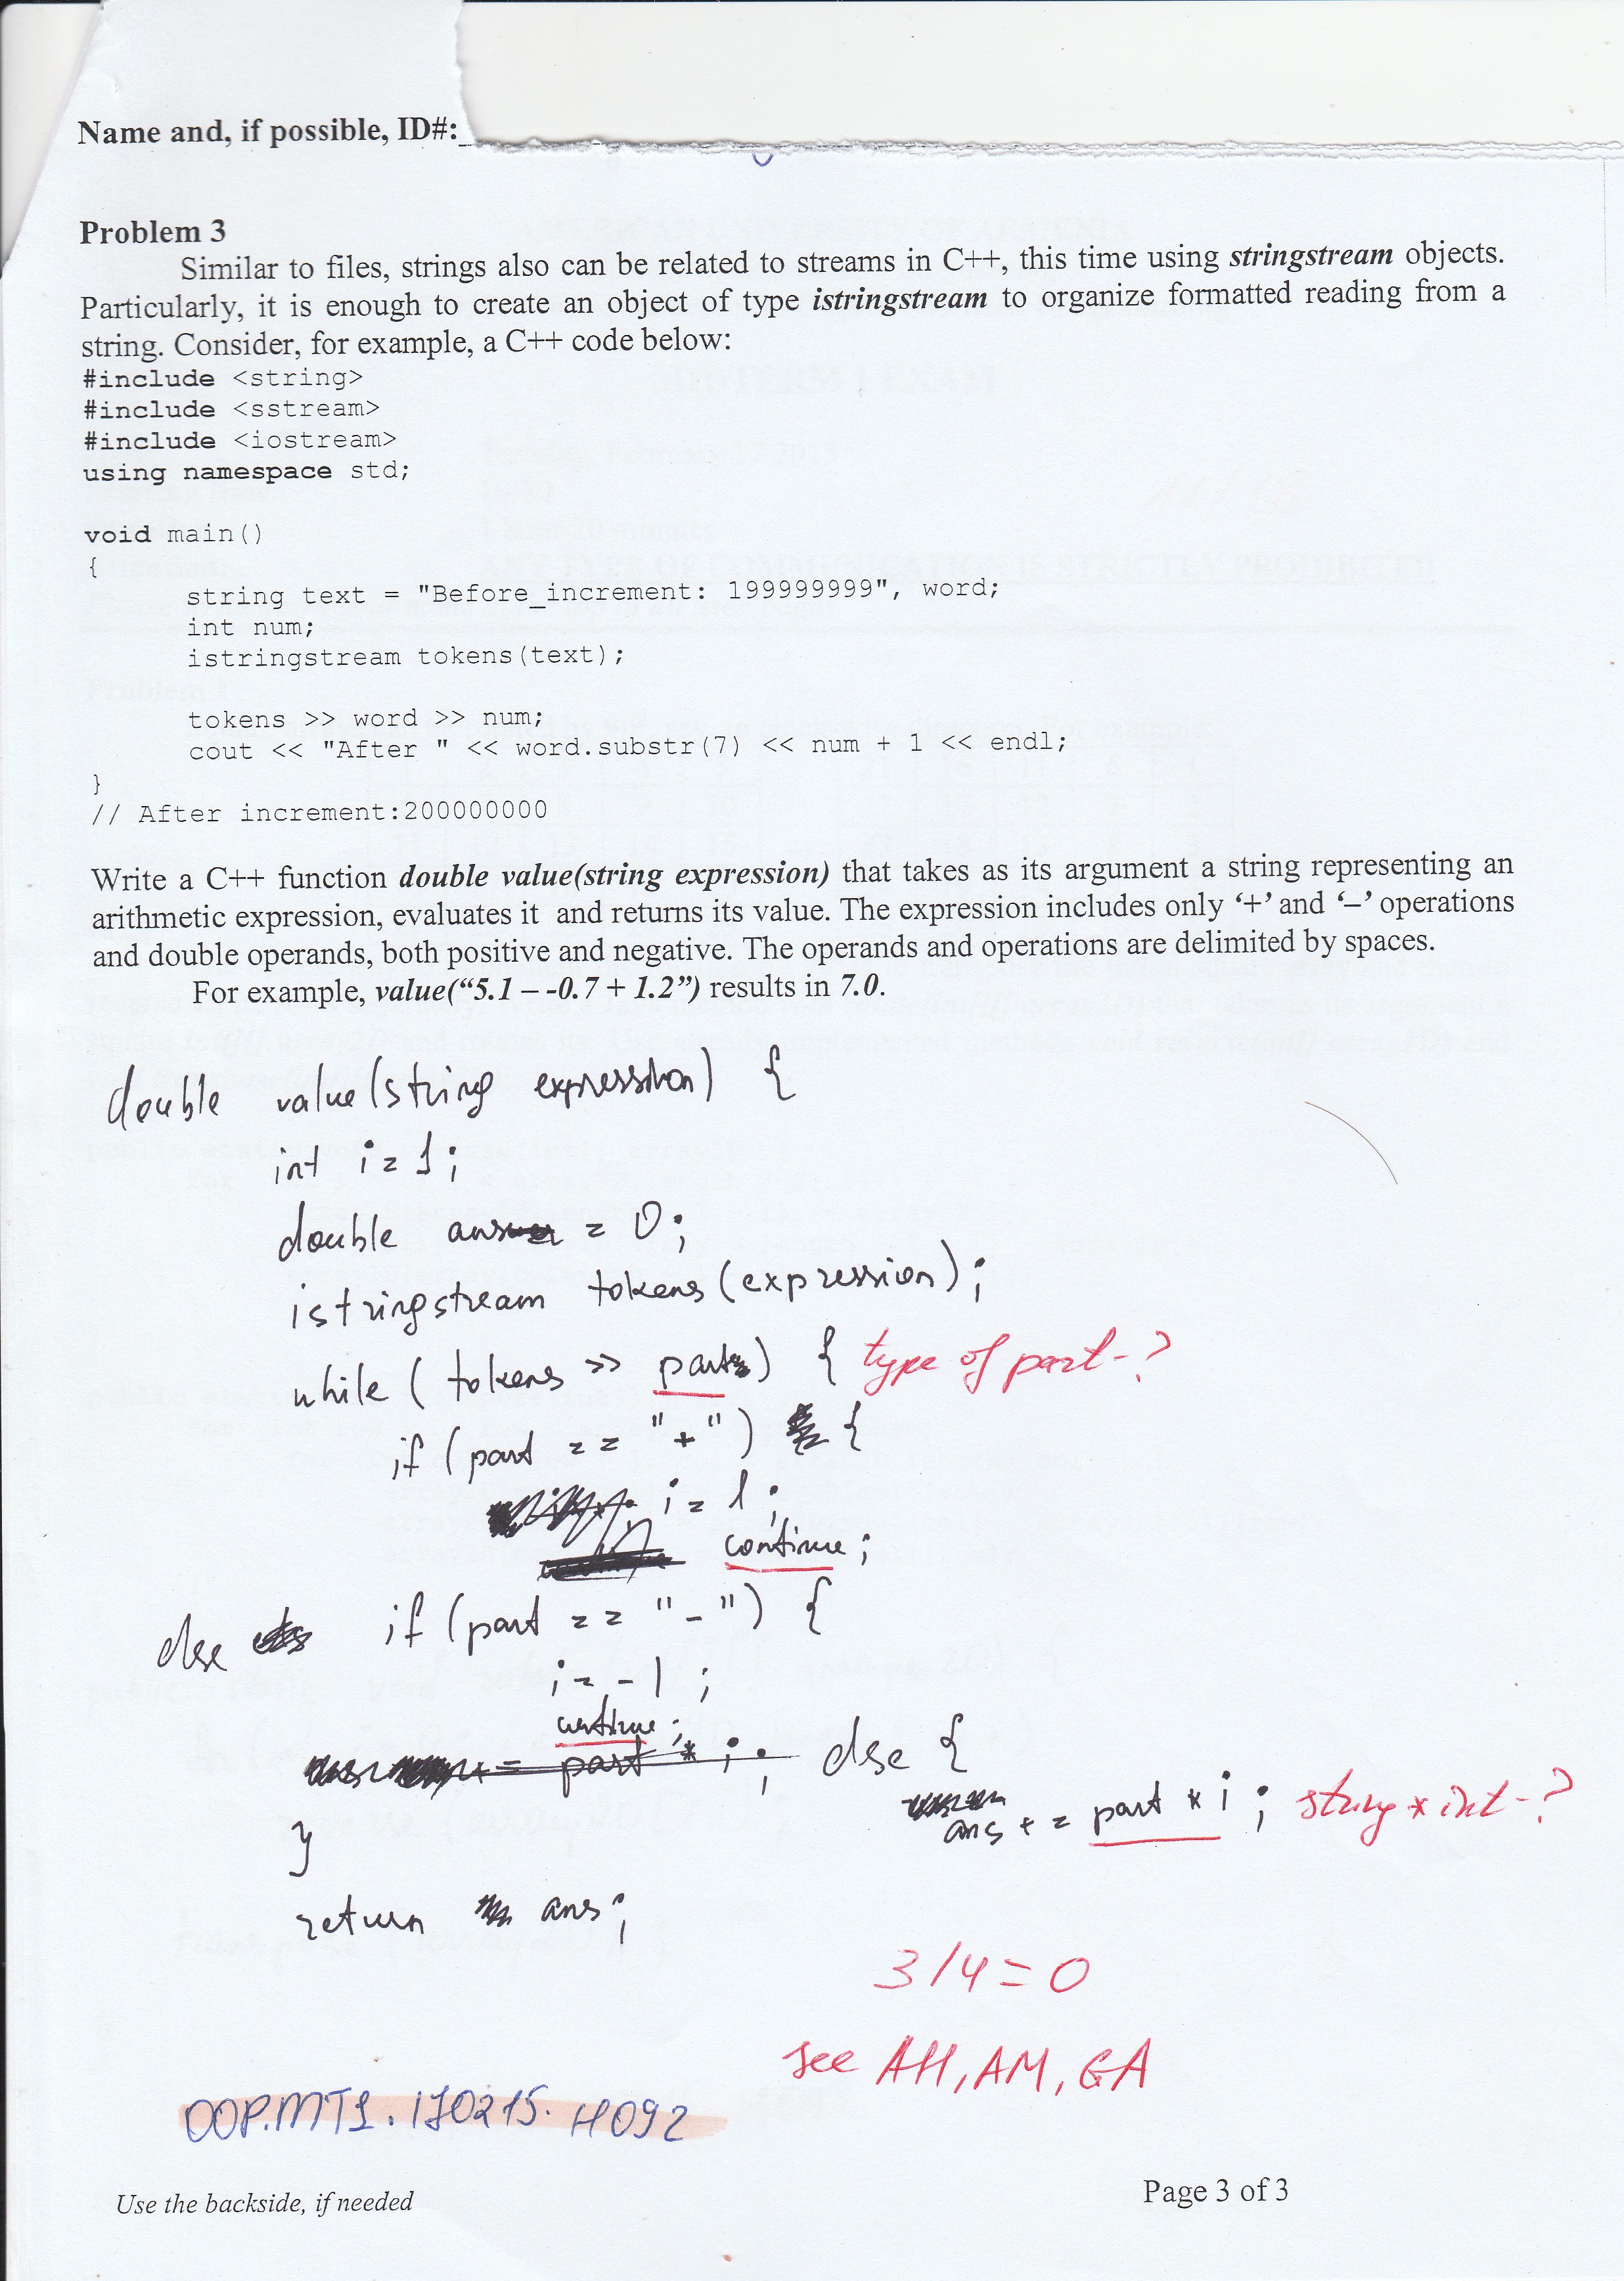 Name and, if possible, ID#:
Problem 3
Similar to files, strings also can be related to streams in C++, this time using stringstream objects.
Particularly, it is enough to create an object of type istringstream to organize formatted reading from a
string. Consider, for example, a C++ code below:
#include <string>
#include <sstream>
#include <iostream>
using namespace std;
void main()
{
string text = "Before_increment: 199999999", word;
int num;
istringstream tokens(text);
tokens >> word >> num;
cout << "After " << word.substr(7) << num + 1 << endl;
}
// After increment:200000000
Write a C++ function double value(string expression) that takes as its argument a string representing an
arithmetic expression, evaluates it and returns its value. The expression includes only ‘+’ and ‘–’ operations
and double operands, both positive and negative. The operands and operations are delimited by spaces.
For example, value(“5.1 – -0.7 + 1.2”) results in 7.0.
double value(string expression) {
int i = 1;
double ans = 0;
istringstream tokens (expression);
while ( tokens >> part) { type of part - ?
if (part == "+") {
i = 1;
continue;
else if (part == "-") {
i = -1;
continue;
part * i; else {
ans += part * i; string * int - ?
}
return ans;
3/4 = 0
see AH, AM, GA
OOP.MT1.170215.H092
Use the backside, if needed
Page 3 of 3